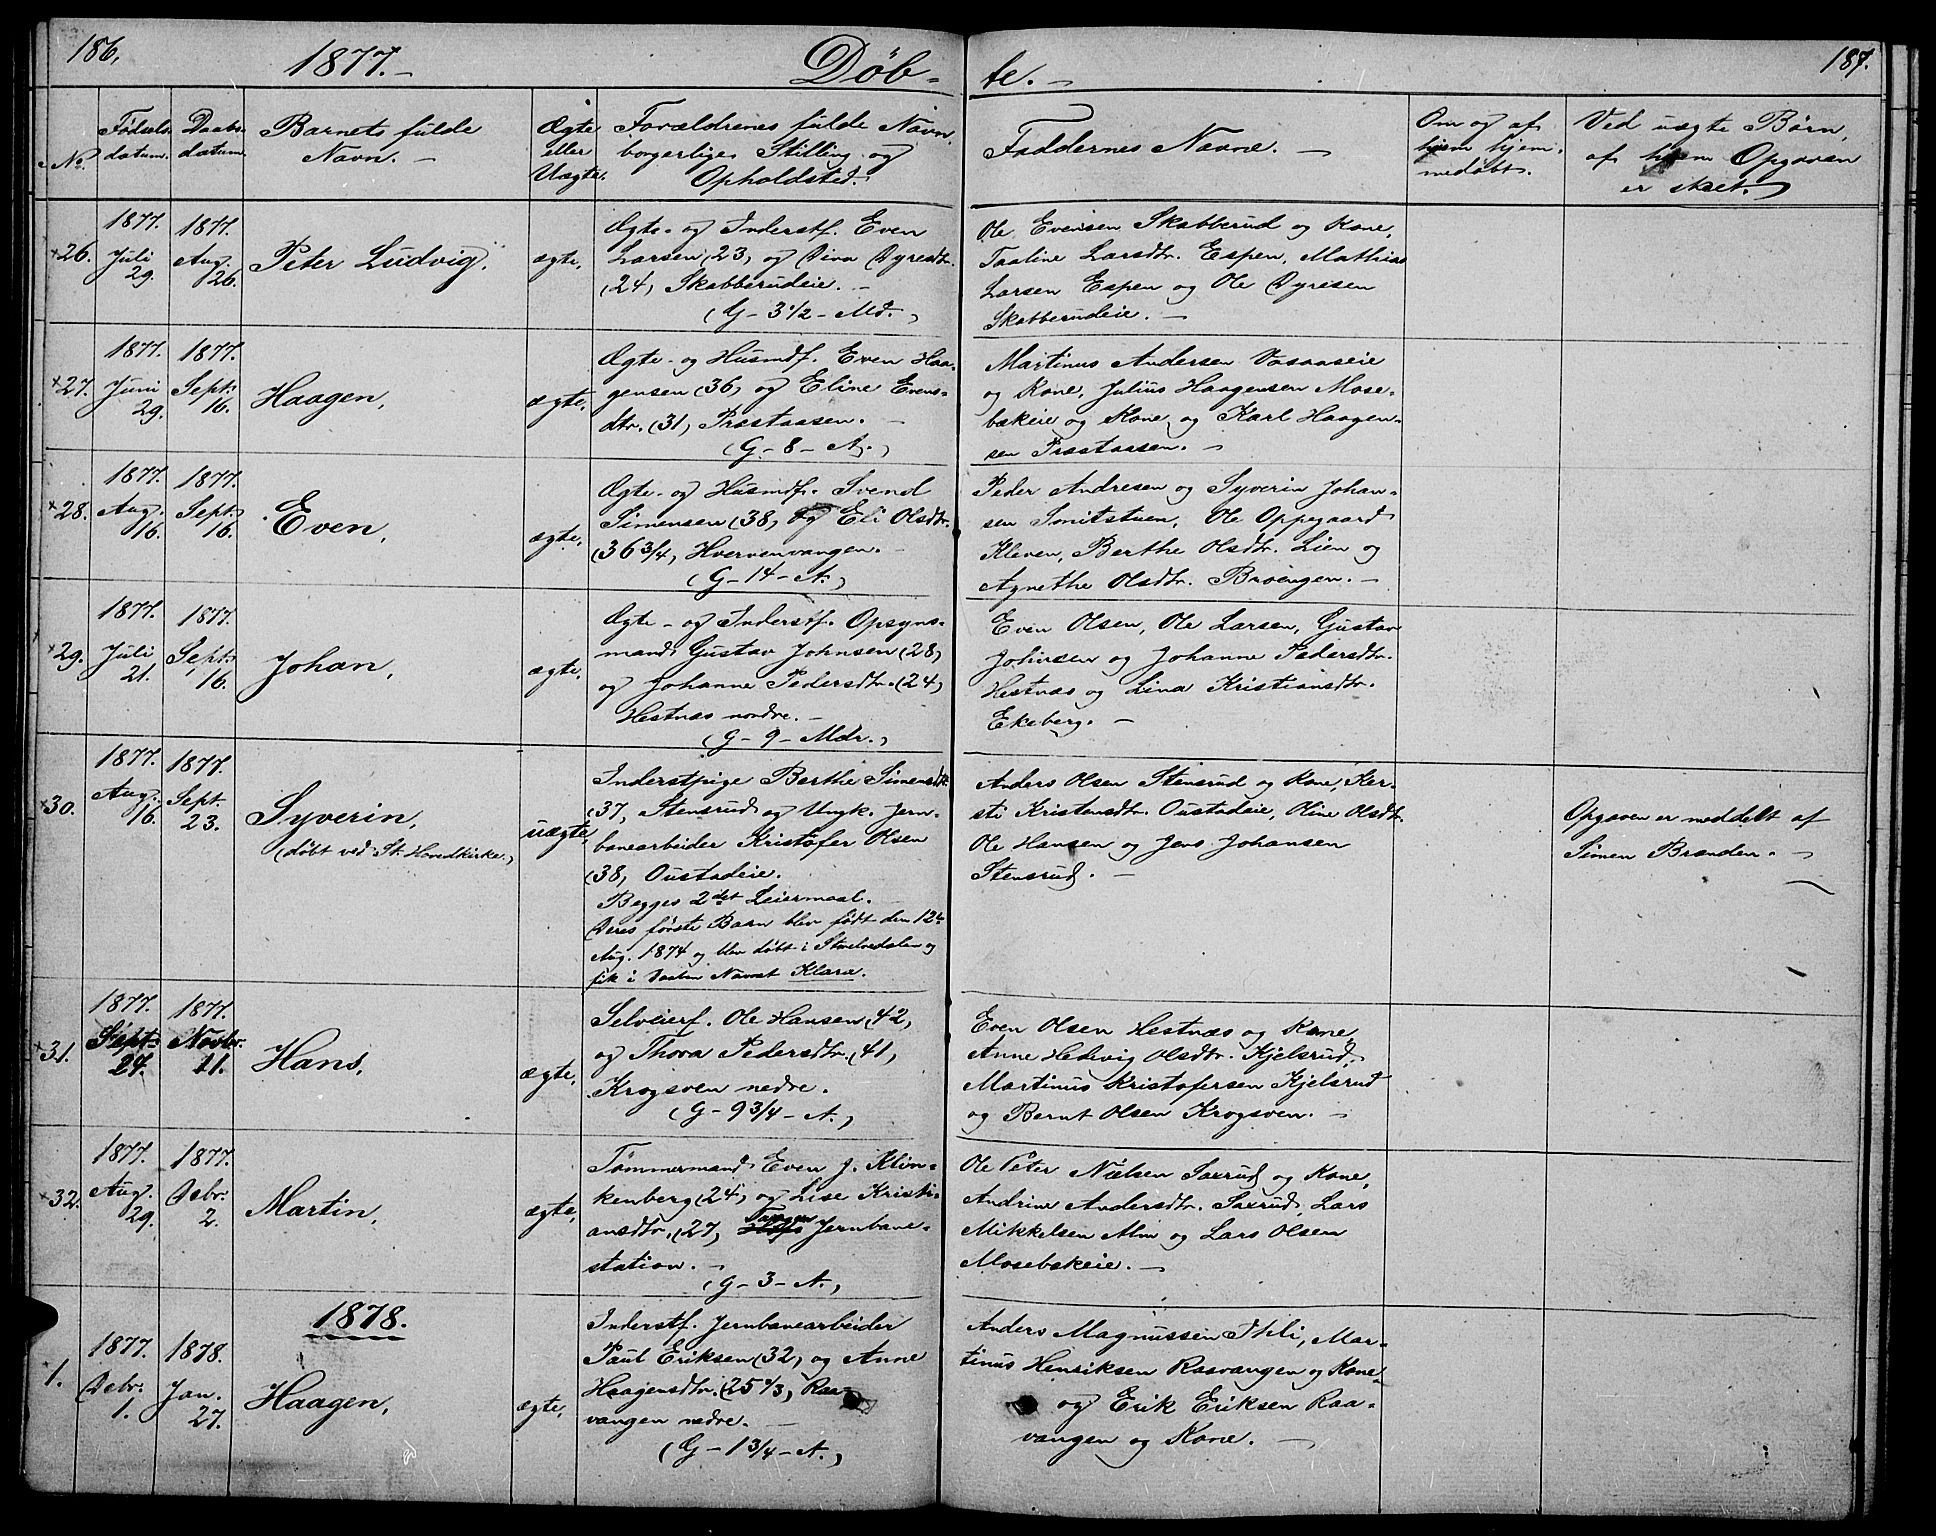 186.
1877.-
Døb-
te.-
187.
No.
Fødsels-
datum.
Daabs-
datum.
Barnets fulde
Navn.-
Ægte
eller
Uægte.
Forældrenes fulde Navn,
borgerlige Stilling og
Opholdsted.
Faddernes Navne.-
Om og af
hvem hjem-
medøbt.
Ved uægte Børn,
af hvem Opgaven
er skeet.
×26.
1877.
Juli
29.
1877.
Aug.
26.
Peter Ludvig,
ægte,
Ægte- og Inderstf. Even
Larsen (23) og Dina Dyresdtr.
(24) Skabberudeie.-
(G-3½-Md.)
Ole Evensen Skabberud og Kone,
Taaline Larsdtr. Espen, Mathias
Larsen Espen og Ole Dyresen
Skabberudeie.-
×27.
1877.
Juni
29.
1877.
Septr
16.
Haagen,
ægte,
Ægte- og Husmdf. Even Haa-
gensen (36) og Eline Evens-
dtr. (31) Præstaasen.-
(G-8-A.)
Martinus Andersen Vasaaseie
og Kone, Julius Haagensen Mose-
bækeie og Kone og Karl Haagen-
sen Præstaasen.-
×28.
1877.
Aug.
16.
1877.
Septr
16.
Even,
ægte,
Ægte- og Husmdf. Svend
Simensen (38) og Eli Olsdtr.
(36¾) Hvervenvangen.-
(G-14-A.)
Peder Andresen og Syverin Johan-
sen Smitstuen, Ole Oppegaard
Kleven, Berthe Olsdtr. Lien og
Agnethe Olsdtr. Broengen.-
×29.
1877.
Juli
21.
1877.
Septr
16.
Johan,
ægte,
Ægte- og Inderstf. Opsyns-
mand Gustav Johnsen (28)
og Johanne Pedersdtr. (24)
Hestnæs nordre.-
(G-9-Mdr.)
Even Olsen, Ole Larsen, Gustav
Johnsen og Johanne Pedersdtr.
Hestnæs og Lina Kristiansdtr.
Ekeberg.-
×30.
1877.
Aug.
16.
1877.
Sept.
23.
Syverin,
(døbt ved St. Hovedkirke.)
uægte,
Inderstpige Berthe Simensdtr.
(37) Stensrud og Ungk. Jern-
banearbeider Kristofer Olsen
(38) Oustadeie.
Begges 2det Leiermaal.-
Deres første Barn blev født den 12te
Aug. 1874 og blev døbt i Stwelvedalen og
fik i Daaben Navnet Klara.
Anders Olsen Stensrud og Kone, Ker-
sti Kristensdtr. Oustadeie, Oline Olsdtr.
Ole Hansen og Jens Johansen
Stensrud.-
Opgaven er meddelt af
Simen Brænden.-
×31.
1877.
Septr
24.
1877.
Novbr.
11.
Hans,
ægte,
Selveierf. Ole Hansen (42)
og Thora Pedersdtr. (41)
Krogsven nedre.
(G-9¾-A.)
Even Olsen Hestnæs og Kone,
Anne Hedevig Olsdtr. Kjelsrud,
Martinus Kristofersen Kjelsrud
og Bernt Olsen Krogsven.-
×32.
1877.
Aug.
29.
1877.
Debr.
2.
Martin,
ægte,
Tømmermand Even J. Klin-
kenberg (24) og Lise Kristi-
ansdtr. (27) Tangen Jernbane-
station.-
(G-3-A.)
Ole Peter Nielsen Saxrud og Kone,
Andrine Andersdtr. Saxrud, Lars
Mikkelsen Alm og Lars Olsen
Mosebækeie.-
1878.
1.
1877.
Debr.
1.
1878.
Jan.
27.
Haagen,
ægte,
Inderstf. Jernbanearbeider
Paul Eriksen (32) og Anne
Haagensdtr. (25⅓) Raa-
vangen nedre.-
(G-1¾-A.)
Anders Magnussen Thli, Mar-
tinus Henriksen Raavangen og Kone
og Erik Eriksen Raa-
vangen og Kone.-